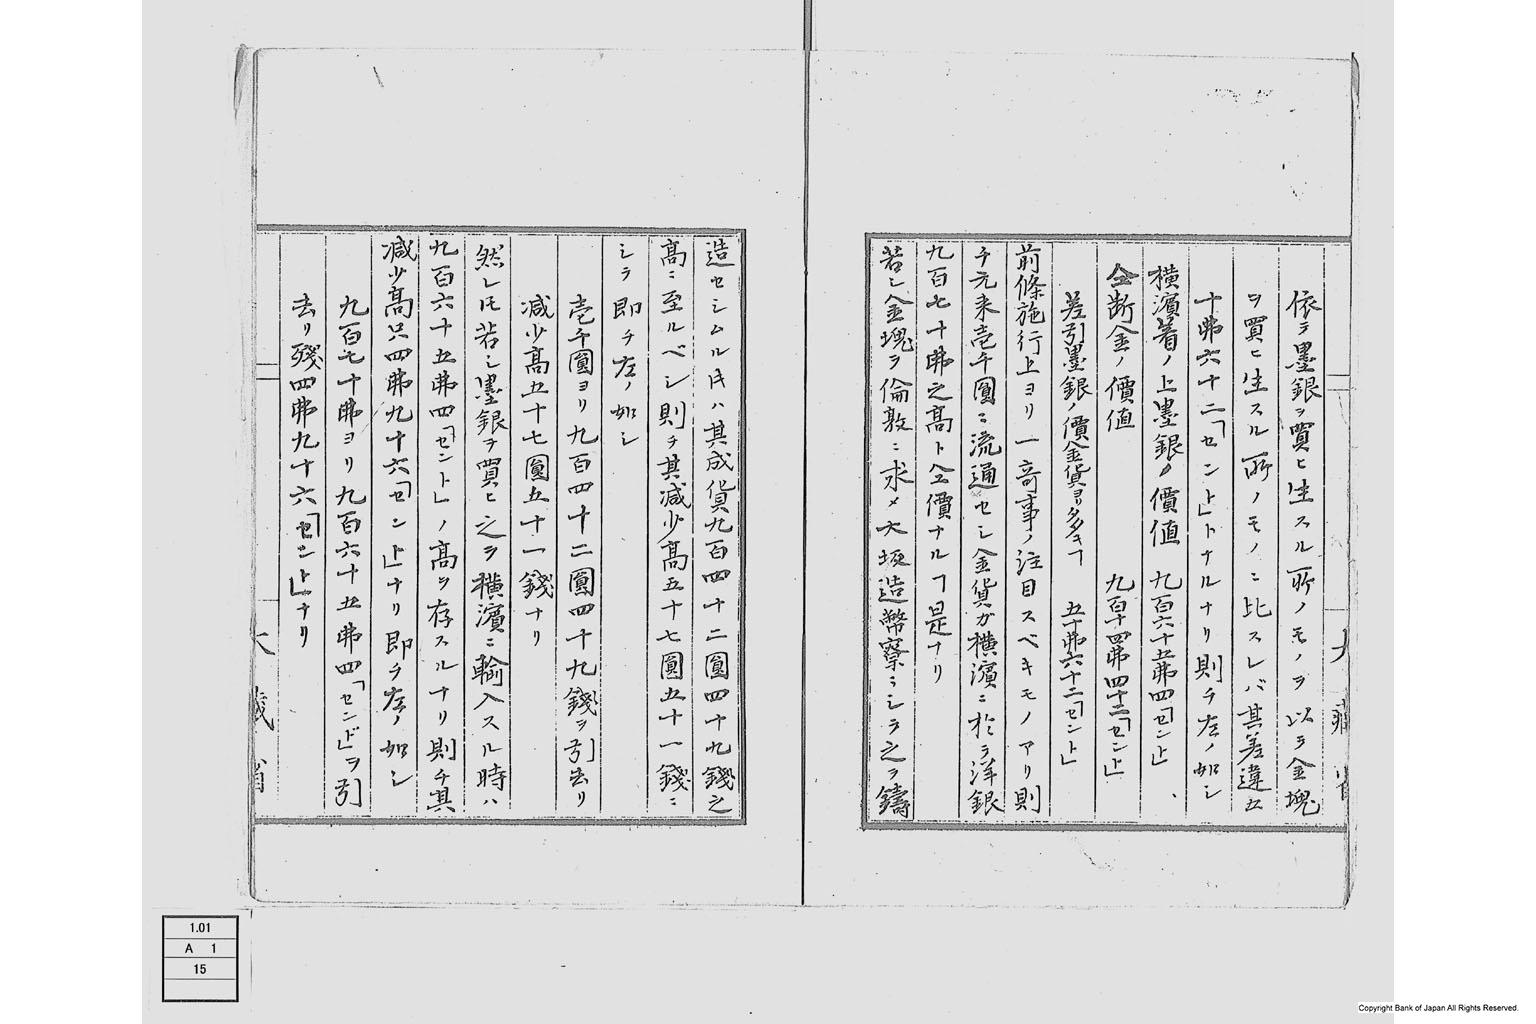 依テ墨銀ヲ買ヒ生スル所ノモノヲ以テ金塊
ヲ買ヒ生スル所ノモノニ比スレバ其差違五
十弗六十二「セント」トナルナリ則チ左ノ如シ
横濱着ノ上墨銀ノ價値 九百六十五弗四「セント」
仝断金ノ價値 九百十四弗四十二「セント」
差引墨銀ノ價金貨ヨリ多キヿ 五十弗六十二「セント」
前條施行上ヨリ一奇事ノ注目スベキモノアリ則
チ元来壱千圓ニ流通セシ金貨ガ横濱ニ於テ洋銀
九百七十弗之高ト仝價ナルヿ是ナリ
若シ金塊ヲ倫敦ニ求メ大坂造幣寮ニシテ之ヲ鑄
大藏省
造セシムル時ハ其成貨九百四十二圓四十九錢之
高ニ至ルベシ則チ其減少高五十七圓五十一錢ニ
シテ即チ左ノ如シ
壱千圓ヨリ九百四十二圓四十九錢ヲ引去リ
減少高五十七圓五十一錢ナリ
然レ𪜈若シ墨銀ヲ買ヒ之ヲ横濱ニ輸入スル時ハ
九百六十五弗四「セント」ノ高ヲ存スルナリ則チ其
減少高只四弗九十六「セント」ナリ即チ左ノ如シ
九百七十弗ヨリ九百六十五弗四「セント」ヲ引
去リ殘四弗九十六「セント」ナリ
大藏省
1.01
A 1
15
Copyright Bank of Japan All Rights Reserved.